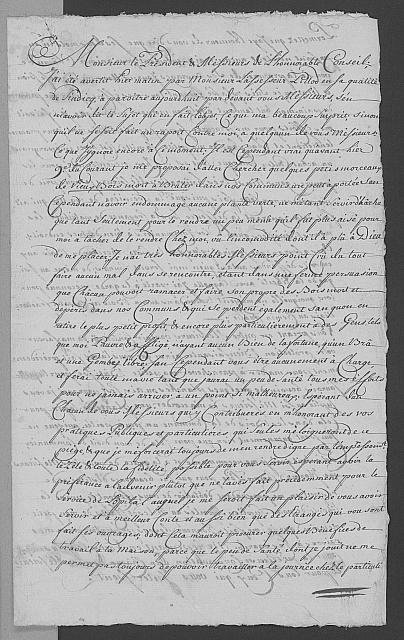 Monsieur le President & Messieurs de L'honnorable Conseil
J'ai été avertit hier matin par Monsieur L'assesseur Lillod en sa qualité
de Sindicq, à paroître aujourdhuit par devant vous Messieurs, sen
m'avoir dit le sujet qui en fait l'objet, ce qui ma beaucoup surprit, sinon
quil ne se soit fait un raport contre moi, à quelquns de vous Messieurs
ce que J'ignore encore à ce moment, Il est cependant vrai quavant hier
9e. du courant je me proposai d'aller chercher quelques petits morceaux
de vieux Bois mort à dans nos Communs, un peu à portée, san
cependant n'avoir endommagé aucune plante verte, ne m'étant servi d'hâche
que tant seulement pour le rendre un peu menu quil fut plus aisé pour
moi à tacher de le rendre chez moi, vu l'incomodité dont il a plu à Dieu
de me placer, Je n'ai très honnorables Messieurs point cru du tout
faire aucun mal. Vous se rencontre, étant dans une ferme persuasion
que chacun pouvoit ramacer et faire son propre des Bois mort et
deperis dans nos Communs & qui se perdent également san quon en
retire le plus petit profit & encore plus particulierement à des Gens tels
que moi Pauvre & affligé n'ayant aucun Bien de la fortune, quun Bra
et une Jambe libre, san cependant vous être aucunement à Charge
et ferai toute ma vie tant que jaurai un peu de santé tous mes efforts
pour ne jamais arriver à un point si malheureux, esperant san
chacun de vous Messieurs qui y Contribuerés en m'honorant de vos
pratiques Publiques et particulieres qui sules m'aloigneront de ce
piege, & que je m'eforcerai toujours de men rendre digne par l'emplessement
le Zéle & toute la fidelité possible pour vous servir, esperant avoir la
préférance à l'alvenir plutot que ne l'avés fait précédemment pour le
service de l'opital auquel je me seroit fait un plaisir de vous avoir
servir et à meilleur conte et au si bien que des etrangés qui vous ont
fait ses ouvrages, dont sela mauroit procurer quelques Bénefices de
travail à la Maison, parce que le peu de santé dont je jouit ne me
permet pas toujours de pouvoir travailler à la journée chez le particuli